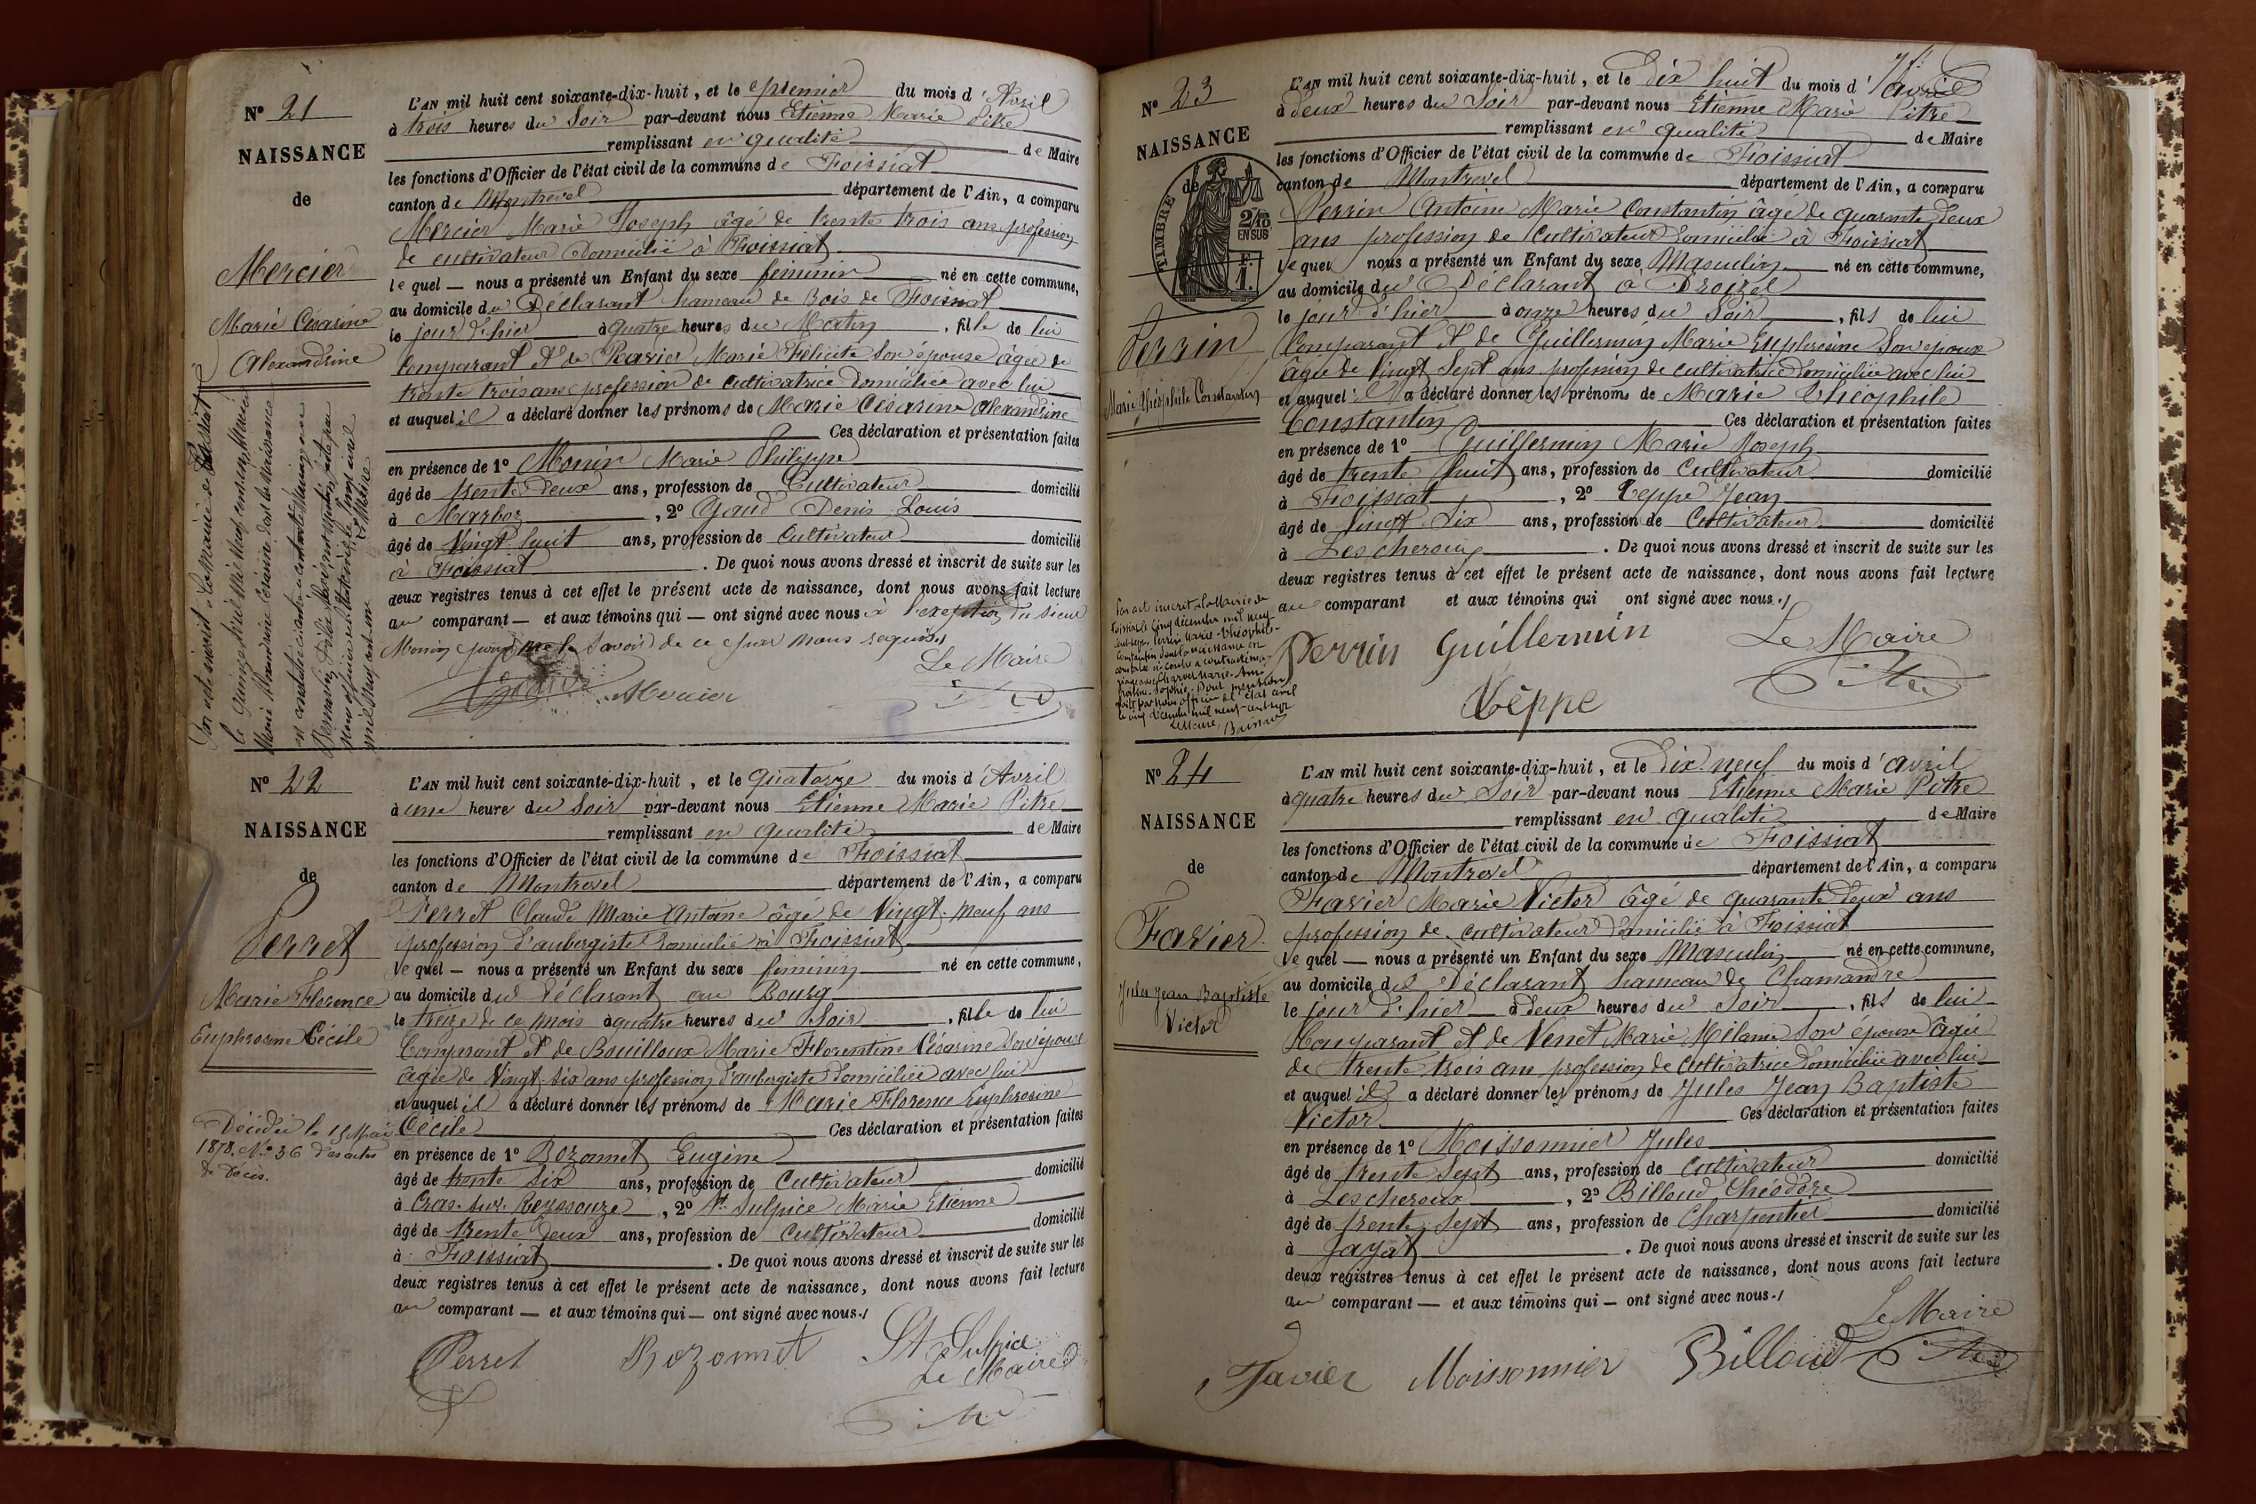 Nº 21
NAISSANCE
de
Mercier
Marie Césarine
Alexandrine
L'AN mil huit cent soixante-dix-huit, et le premier du mois d'Avril
à trois heures du Soir par-devant nous Etienne Marie Pitre
remplissant en qualité de Maire
les fonctions d'Officier de l'état civil de la commune de Foissiat
canton de Montrevel département de l'Ain, a comparu
Mercier Marie Joseph âgé de trente trois ans profession
de cultivateur domicilié à Foissiat
lequel — nous a présenté un Enfant du sexe féminin né en cette commune,
au domicile du Déclarant hameau de Bois de Foissiat
le jour d'hier à quatre heures du Matin, fille de lui
Comparant et de Ravier Marie Félicité son épouse âgée de
trente trois ans profession de cultivatrice domiciliée avec lui
et auquel il a déclaré donner les prénoms de Marie Césarine Alexandrine
Ces déclaration et présentation faites
en présence de 1º Monin Marie Philippe
âgé de trente deux ans, profession de Cultivateur domicilié
à Marboz, 2º Gaud Denis Louis
âgé de Vingt huit ans, profession de Cultivateur domicilié
à Foissiat. De quoi nous avons dressé et inscrit de suite sur les
deux registres tenus à cet effet le présent acte de naissance, dont nous avons fait lecture
au comparant — et aux témoins qui — ont signé avec nous à l'exception du sieur
Monin pour ne le savoir de ce par nous requis
Le Maire
Mercier
Nº 22
NAISSANCE
de
Perret
Marie Florence
Euphrosine Cécile
Décédée le 15 Mai
1878. Nº 36 des actes
de Décès.
L'AN mil huit cent soixante-dix-huit, et le quatorze du mois d'Avril
à une heure du Soir par-devant nous Etienne Marie Pitre
remplissant en qualité de Maire
les fonctions d'Officier de l'état civil de la commune de Foissiat
canton de Montrevel département de l'Ain, a comparu
Perret Claude Marie Antoine âgé de Vingt-neuf ans
profession d'aubergiste domicilié à Foissiat
lequel — nous a présenté un Enfant du sexe féminin né en cette commune,
au domicile du déclarant au Bourg
le treize de ce mois à quatre heures du Soir, fille de lui
Comparant et de Bouilloux Marie Florentine Césarine son épouse
âgée de Vingt six ans profession d'aubergiste domiciliée avec lui
et auquel il a déclaré donner les prénoms de Marie Florence Euphrosine
Cécile Ces déclaration et présentation faites
en présence de 1º Bozonnet Eugène
âgé de trente six ans, profession de Cultivateur domicilié
à Cras-sur-Reyssouze, 2º St Sulpice Marie Etienne
âgé de trente deux ans, profession de Cultivateur domicilié
à Foissiat. De quoi nous avons dressé et inscrit de suite sur les
deux registres tenus à cet effet le présent acte de naissance, dont nous avons fait lecture
au comparant — et aux témoins qui — ont signé avec nous./
Perret Bozonnet St Sulpice
Le Maire
Nº 23
NAISSANCE
de
TIMBRE
2/10
EN SUS
F.
1.
Perrin
Marie Théophile Constantin
L'AN mil huit cent soixante-dix-huit, et le dix huit du mois d'avril
à deux heures du Soir par-devant nous Etienne Marie Pitre
remplissant en qualité de Maire
les fonctions d'Officier de l'état civil de la commune de Foissiat
canton de Montrevel département de l'Ain, a comparu
Perrin Antoine Marie Constantin âgé de quarante deux
ans profession de Cultivateur domicilié à Foissiat
lequel nous a présenté un Enfant du sexe Masculin né en cette commune,
au domicile du Déclarant à
le jour d'hier à onze heures du Soir, fils de lui
Comparant et de Guillermin Marie Euphrosine son épouse
âgée de Vingt Sept ans profession de cultivatrice domiciliée avec lui
et auquel il a déclaré donner les prénoms de Marie Théophile
Constantin Ces déclaration et présentation faites
en présence de 1º Guillermin Marie Joseph
âgé de trente huit ans, profession de Cultivateur domicilié
à Foissiat, 2º Teppe Jean
âgé de Vingt Six ans, profession de Cultivateur domicilié
à Lescheroux. De quoi nous avons dressé et inscrit de suite sur les
deux registres tenus à cet effet le présent acte de naissance, dont nous avons fait lecture
au comparant et aux témoins qui ont signé avec nous./
Perrin Guillermin Le Maire
Teppe
Nº 24
NAISSANCE
de
Favier
Jules Jean Baptiste
Victor
L'AN mil huit cent soixante-dix-huit, et le dix-neuf du mois d'avril
à quatre heures du Soir par-devant nous Etienne Marie Pitre
remplissant en qualité de Maire
les fonctions d'Officier de l'état civil de la commune de Foissiat
canton de Montrevel département de l'Ain, a comparu
Favier Marie Victor âgé de quarante deux ans
profession de cultivateur domicilié à Foissiat
lequel — nous a présenté un Enfant du sexe Masculin né en cette commune,
au domicile du déclarant hameau de Chamandre
le jour d'hier à deux heures du Soir, fils de lui
Comparant et de Venet Marie Mélanie son épouse âgée
de trente trois ans profession de Cultivatrice domiciliée avec lui
et auquel il a déclaré donner les prénoms de Jules Jean Baptiste
Victor Ces déclaration et présentation faites
en présence de 1º Moissonnier Jules
âgé de trente Sept ans, profession de Cultivateur domicilié
à Lescheroux, 2º Billoud Théodore
âgé de trente Sept ans, profession de Charpentier domicilié
à Jayat. De quoi nous avons dressé et inscrit de suite sur les
deux registres tenus à cet effet le présent acte de naissance, dont nous avons fait lecture
au comparant — et aux témoins qui — ont signé avec nous./
Le Maire
Favier Moissonnier Billoud